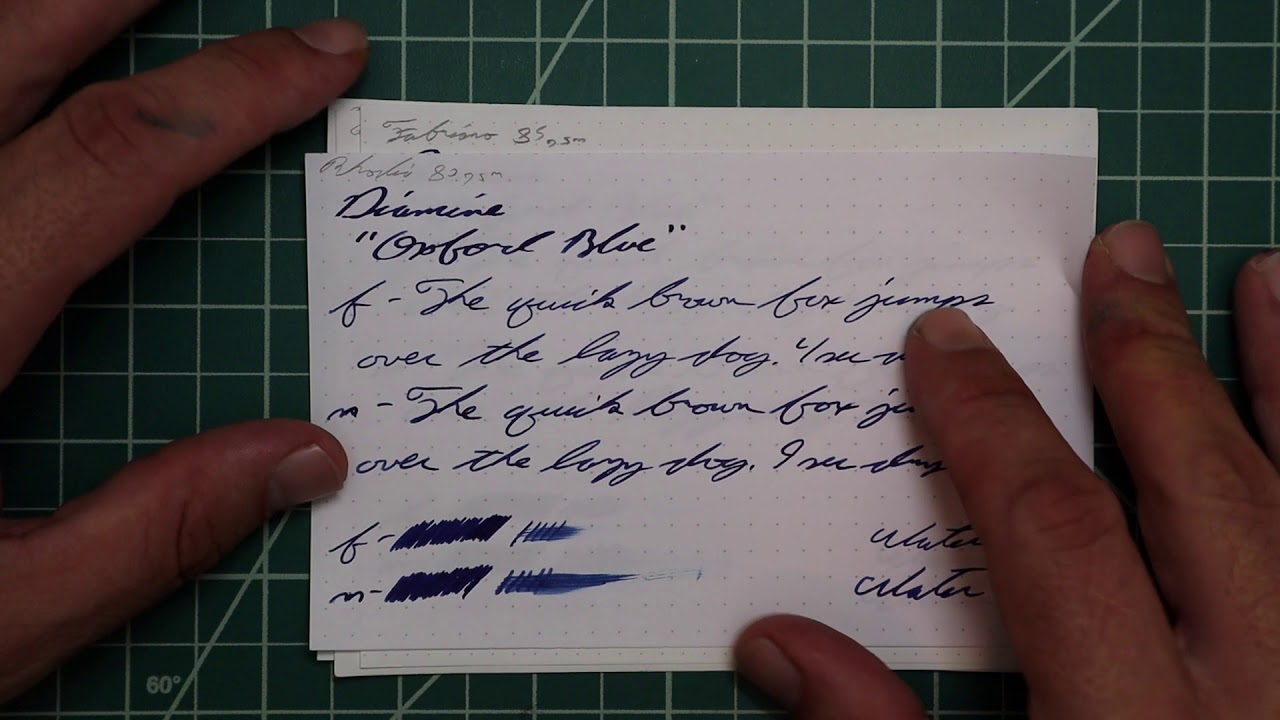 Fabriano 85gsm
Rhodia 80gsm
Diamine
"Oxford Blue"
f - The quick brown fox jumps
over the lazy dog. I see
m - The quick brown fox
over the lazy dog. I see
f -
m -
Water
Water
60°